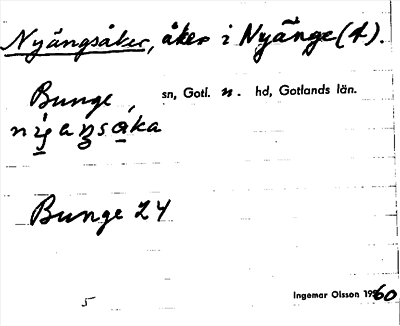 Nyängsåker, åker i Nyänge (4).
Bunge sn, Gotl. n. hd, Gotlands län.
Bunge 24
5
Ingemar Olsson 1960